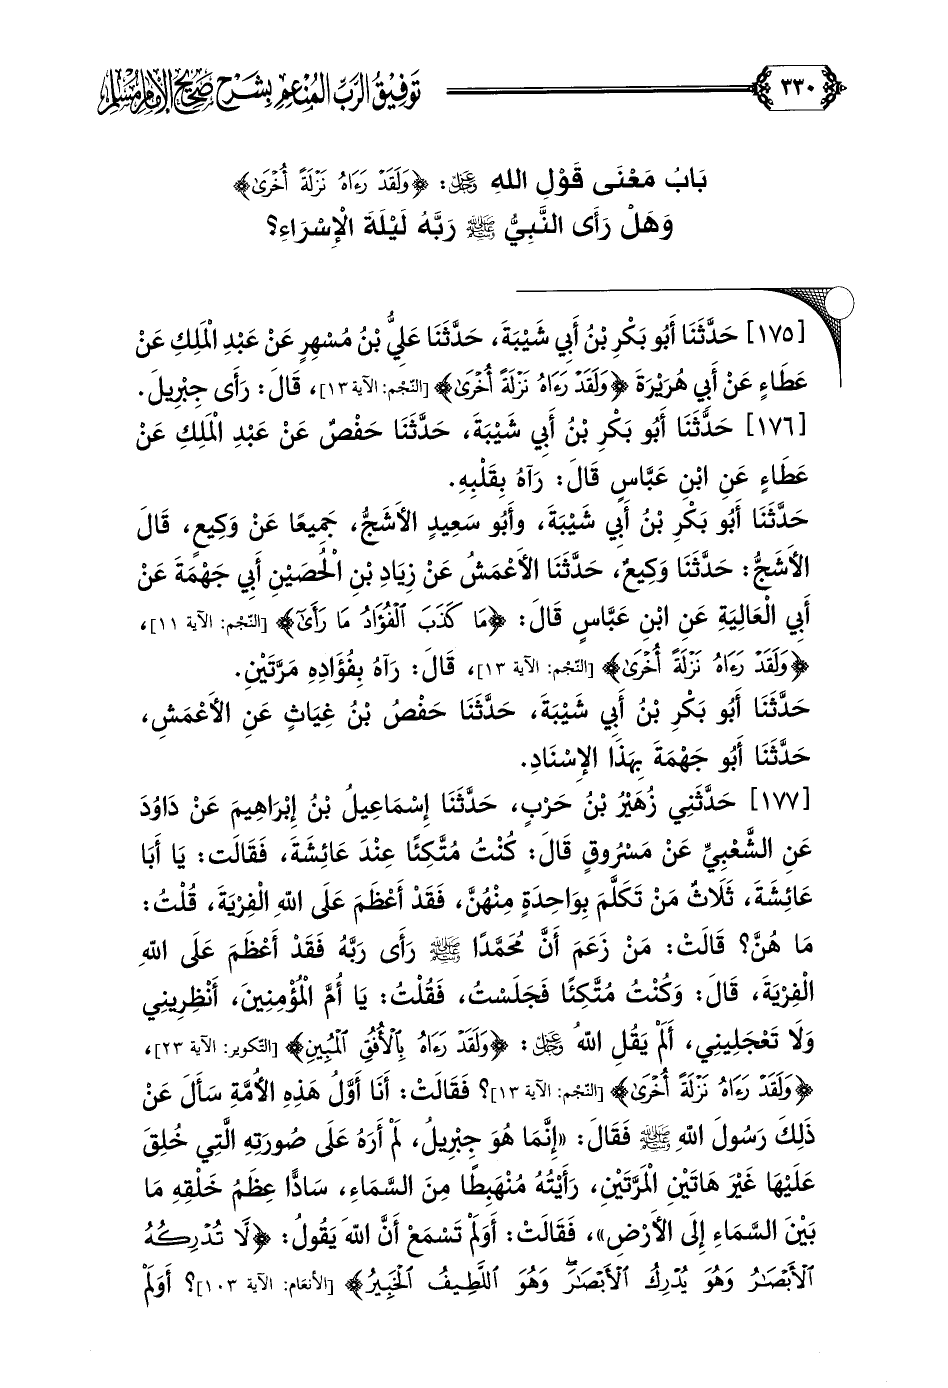 ٣٣٠
تَوفِيقُ الرَّبِّ المُنْعِمِ بِشَرْحِ صَحِيحِ الإِمَامِ مُسْلِمٍ
بَابُ مَعْنَى قَوْلِ اللهِ ﷿: ﴿وَلَقَدۡ رَءَاهُ نَزۡلَةً أُخۡرَىٰ﴾
وَهَلْ رَأَى النَّبِيُّ ﷺ رَبَّهُ لَيْلَةَ الْإِسْرَاءِ؟
[١٧٥] حَدَّثَنَا أَبُو بَكْرِ بْنُ أَبِي شَيْبَةَ، حَدَّثَنَا عَلِيُّ بْنُ مُسْهِرٍ عَنْ عَبْدِ الْمَلِكِ عَنْ
عَطَاءٍ عَنْ أَبِي هُرَيْرَةَ ﴿وَلَقَدۡ رَءَاهُ نَزۡلَةً أُخۡرَىٰ﴾ [النّجْم: الآية ١٣]، قَالَ: رَأَى جِبْرِيلَ.
[١٧٦] حَدَّثَنَا أَبُو بَكْرِ بْنُ أَبِي شَيْبَةَ، حَدَّثَنَا حَفْصٌ عَنْ عَبْدِ الْمَلِكِ عَنْ
عَطَاءٍ عَنِ ابْنِ عَبَّاسٍ قَالَ: رَآهُ بِقَلْبِهِ.
حَدَّثَنَا أَبُو بَكْرِ بْنُ أَبِي شَيْبَةَ، وَأَبُو سَعِيدٍ الأَشَجُّ، جَمِيعًا عَنْ وَكِيعٍ، قَالَ
الأَشَجُّ: حَدَّثَنَا وَكِيعٌ، حَدَّثَنَا الأَعْمَشُ عَنْ زِيَادِ بْنِ الْحُصَيْنِ أَبِي جَهْمَةَ عَنْ
أَبِي الْعَالِيَةِ عَنِ ابْنِ عَبَّاسٍ قَالَ: ﴿مَا كَذَبَ ٱلۡفُؤَادُ مَا رَأَىٰٓ﴾ [النّجْم: الآية ١١]،
﴿وَلَقَدۡ رَءَاهُ نَزۡلَةً أُخۡرَىٰ﴾ [النّجْم: الآية ١٣]، قَالَ: رَآهُ بِفُؤَادِهِ مَرَّتَيْنِ.
حَدَّثَنَا أَبُو بَكْرِ بْنُ أَبِي شَيْبَةَ، حَدَّثَنَا حَفْصُ بْنُ غِيَاثٍ عَنِ الأَعْمَشِ،
حَدَّثَنَا أَبُو جَهْمَةَ بِهَذَا الإِسْنَادِ.
[١٧٧] حَدَّثَنِي زُهَيْرُ بْنُ حَرْبٍ، حَدَّثَنَا إِسْمَاعِيلُ بْنُ إِبْرَاهِيمَ عَنْ دَاوُدَ
عَنِ الشَّعْبِيِّ عَنْ مَسْرُوقٍ قَالَ: كُنْتُ مُتَّكِئًا عِنْدَ عَائِشَةَ، فَقَالَت: يَا أَبَا
عَائِشَةَ، ثَلَاثٌ مَنْ تَكَلَّمَ بِوَاحِدَةٍ مِنْهُنَّ، فَقَدْ أَعْظَمَ عَلَى اللهِ الْفِرْيَةَ، قُلْتُ:
مَا هُنَّ؟ قَالَتْ: مَنْ زَعَمَ أَنَّ مُحَمَّدًا ﷺ رَأَى رَبَّهُ فَقَدْ أَعْظَمَ عَلَى اللهِ
الْفِرْيَةَ، قَالَ: وَكُنْتُ مُتَّكِئًا فَجَلَسْتُ، فَقُلْتُ: يَا أُمَّ الْمُؤْمِنِينَ، أَنْظِرِينِي
وَلَا تَعْجَلِينِي، أَلَمْ يَقُلِ اللهُ ﷿: ﴿وَلَقَدۡ رَءَاهُ بِٱلۡأُفُقِ ٱلۡمُبِينِ﴾ [التّكوير: الآية ٢٣]،
﴿وَلَقَدۡ رَءَاهُ نَزۡلَةً أُخۡرَىٰ﴾ [النّجْم: الآية ١٣]؟ فَقَالَتْ: أَنَا أَوَّلُ هَذِهِ الأُمَّةِ سَأَلَ عَنْ
ذَلِكَ رَسُولَ اللهِ ﷺ فَقَالَ: «إِنَّمَا هُوَ جِبْرِيلُ، لَمْ أَرَهُ عَلَى صُورَتِهِ الَّتِي خُلِقَ
عَلَيْهَا غَيْرَ هَاتَيْنِ الْمَرَّتَيْنِ، رَأَيْتُهُ مُنْهَبِطًا مِنَ السَّمَاءِ، سَادًّا عِظَمُ خَلْقِهِ مَا
بَيْنَ السَّمَاءِ إِلَى الأَرْضِ»، فَقَالَتْ: أَوَلَمْ تَسْمَعْ أَنَّ اللهَ يَقُولُ: ﴿لَّا تُدۡرِكُهُ
ٱلۡأَبۡصَٰرُ وَهُوَ يُدۡرِكُ ٱلۡأَبۡصَٰرَۖ وَهُوَ ٱللَّطِيفُ ٱلۡخَبِيرُ﴾ [الأنعَام: الآية ١٠٣]؟ أَوَلَمْ